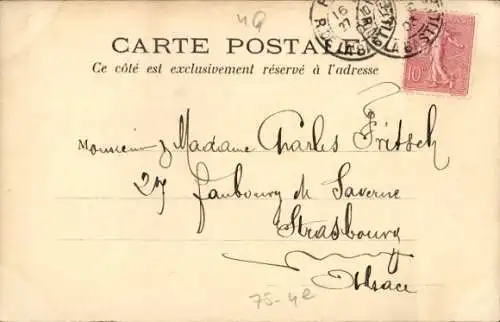 4Q
CARTE POSTALE
Ce côté est exclusivement réservé à l'adresse
10
Monsieur & Madame Charles Fritsch
27 Faubourg de Saverne
Strasbourg
Alsace
75-4e